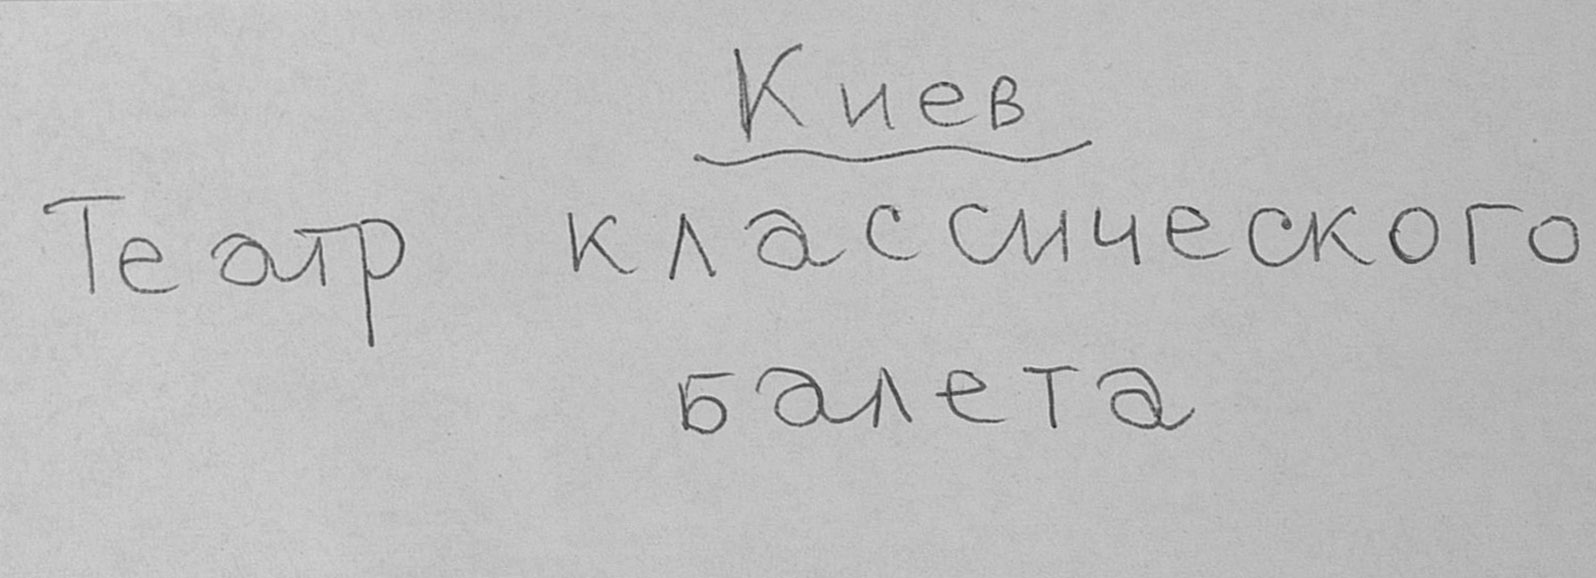 Киев
Театр классического
балета